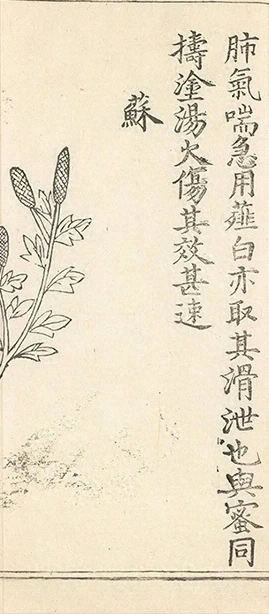 肺氣喘急用薤白亦取其滑泄也與蜜同
擣塗湯火傷其效甚速
蘇